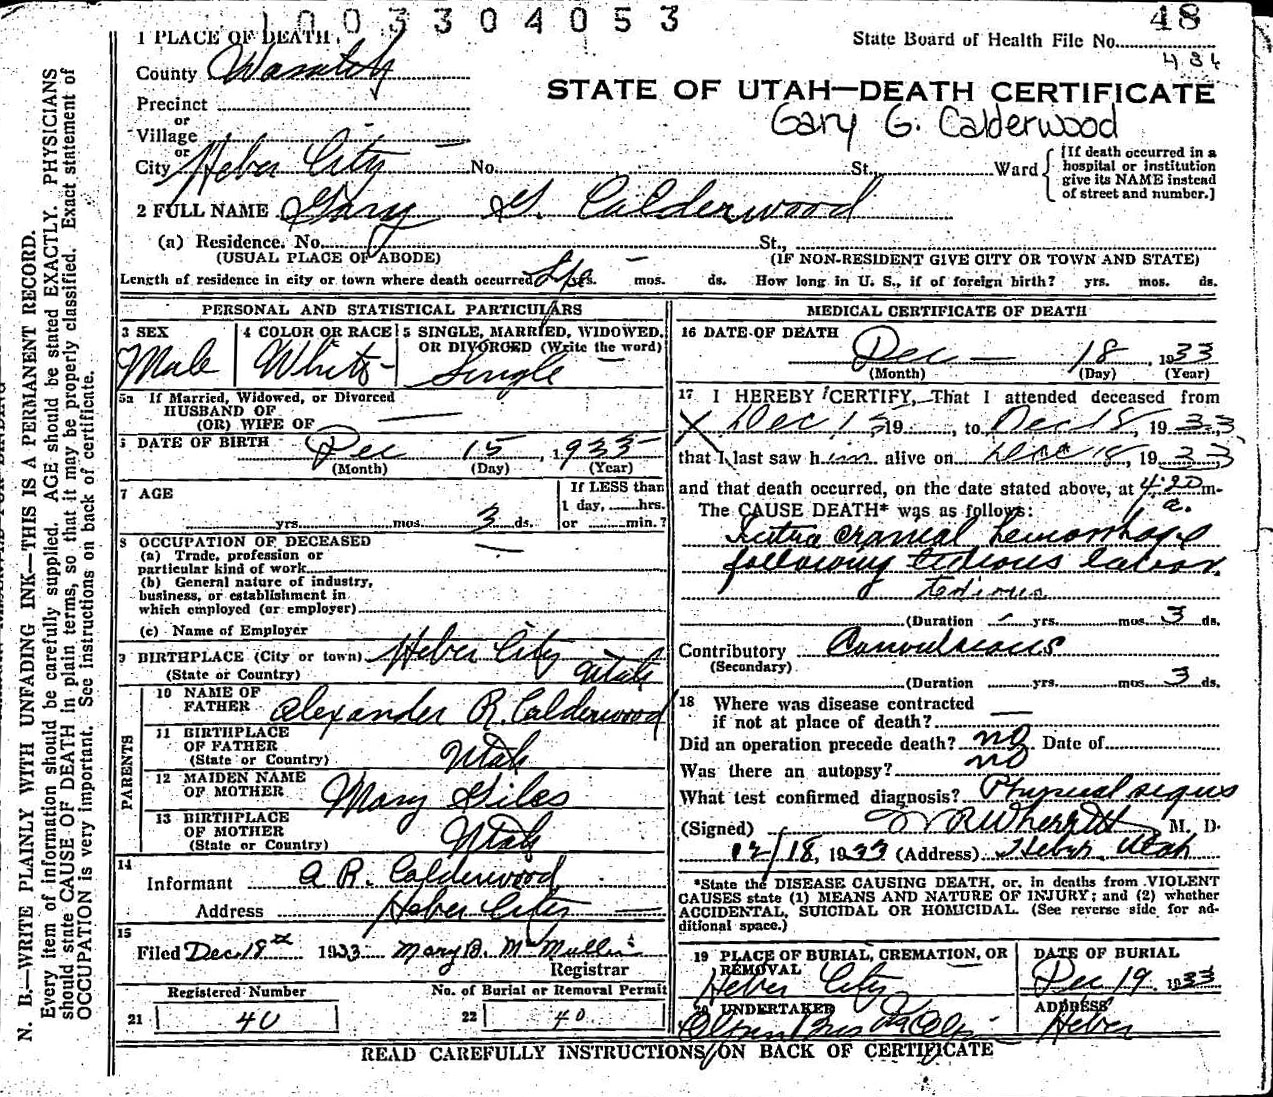 1003304053
48
1 PLACE OF DEATH
State Board of Health File No.
436
County Wasatch
STATE OF UTAH—DEATH CERTIFICATE
Precinct
Gary G. Calderwood
or
Village
or
City Heber City No. St., Ward
[If death occurred in a
hospital or institution
give its NAME instead
of street and number.]
2 FULL NAME Gary G. Calderwood
(a) Residence. No. St.,
(USUAL PLACE OF ABODE) (IF NON-RESIDENT GIVE CITY OR TOWN AND STATE)
Length of residence in city or town where death occurred yrs. mos. ds. How long in U. S., if of foreign birth? yrs. mos. ds.
PERSONAL AND STATISTICAL PARTICULARS
3 SEX
Male
4 COLOR OR RACE
White
5 SINGLE, MARRIED, WIDOWED,
OR DIVORCED (Write the word)
Single
5a If Married, Widowed, or Divorced
HUSBAND OF
(OR) WIFE OF
6 DATE OF BIRTH Dec 15, 1933
(Month) (Day) (Year)
7 AGE
yrs. mos. 3 ds.
If LESS than
1 day, hrs.
or min.?
8 OCCUPATION OF DECEASED
(a) Trade, profession or
particular kind of work
(b) General nature of industry,
business, or establishment in
which employed (or employer)
(c) Name of Employer
9 BIRTHPLACE (City or town) Heber City
(State or Country) Utah
PARENTS
10 NAME OF
FATHER Alexander R. Calderwood
11 BIRTHPLACE
OF FATHER
(State or Country) Utah
12 MAIDEN NAME
OF MOTHER Mary Giles
13 BIRTHPLACE
OF MOTHER
(State or Country) Utah
14
Informant A R. Calderwood
Address Heber City
15
Filed Dec. 18th 1933 Mary B. McMullin
Registrar
Registered Number No. of Burial or Removal Permit
21 40 22 40
MEDICAL CERTIFICATE OF DEATH
16 DATE OF DEATH
Dec — 18, 1933
(Month) (Day) (Year)
17 I HEREBY CERTIFY, That I attended deceased from
X Dec 15 19, to Dec 18, 1933
that I last saw him alive on Dec 18, 1933
and that death occurred, on the date stated above, at 4:20 m.
a.
The CAUSE DEATH* was as follows:
Intra cranial hemorrhage
following tedious labor.
tedious
(Duration yrs. mos. 3 ds.
Contributory Convulsions
(Secondary)
(Duration yrs. mos. 3 ds.
18 Where was disease contracted
if not at place of death?
Did an operation precede death? no Date of
Was there an autopsy? no
What test confirmed diagnosis? Physical signs
(Signed) R Wherritt M. D.
12/18, 1933 (Address) Heber, Utah
*State the DISEASE CAUSING DEATH, or, in deaths from VIOLENT
CAUSES state (1) MEANS AND NATURE OF INJURY; and (2) whether
ACCIDENTAL, SUICIDAL OR HOMICIDAL. (See reverse side for ad-
ditional space.)
19 PLACE OF BURIAL, CREMATION, OR
REMOVAL
Heber City
DATE OF BURIAL
Dec 19, 1933
20 UNDERTAKER
Olson Bros
ADDRESS
Heber
READ CAREFULLY INSTRUCTIONS ON BACK OF CERTIFICATE
N. B.—WRITE PLAINLY WITH UNFADING INK—THIS IS A PERMANENT RECORD.
Every item of information should be carefully supplied. AGE should be stated EXACTLY. PHYSICIANS
should state CAUSE OF DEATH in plain terms, so that it may be properly classified. Exact statement of
OCCUPATION is very important. See instructions on back of certificate.